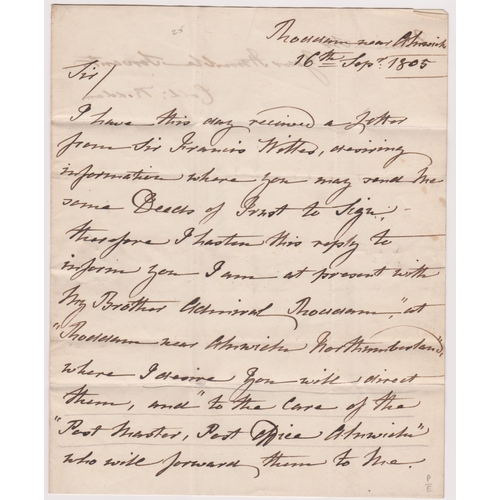 Roddam near Alnwick
26th Sepr. 1805
Sir/
I have this day received a Letter
from Sir Francis Willes, desiring
information where you may send me
some Deeds of Trust to Sign,
therefore I hasten this reply to
inform you I am at present with
My Brother Admiral Roddam, "at
"Roddam near Alnwick Northumberland",
where I desire you will direct
them, and "to the Care of the
"Post Master, Post Office Alnwick"
who will forward them to Me.